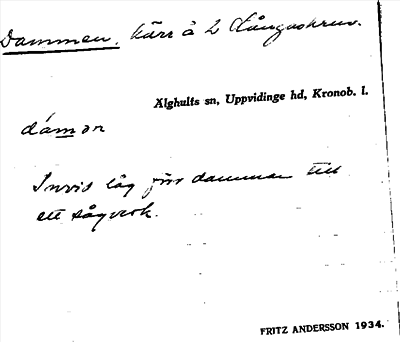 Dammen. kärr å L Långaskruv.
Älghults sn, Uppvidinge hd, Kronob. l.
dámən
Invid låg förr dammen till
ett sågverk.
FRITZ ANDERSSON 1934.